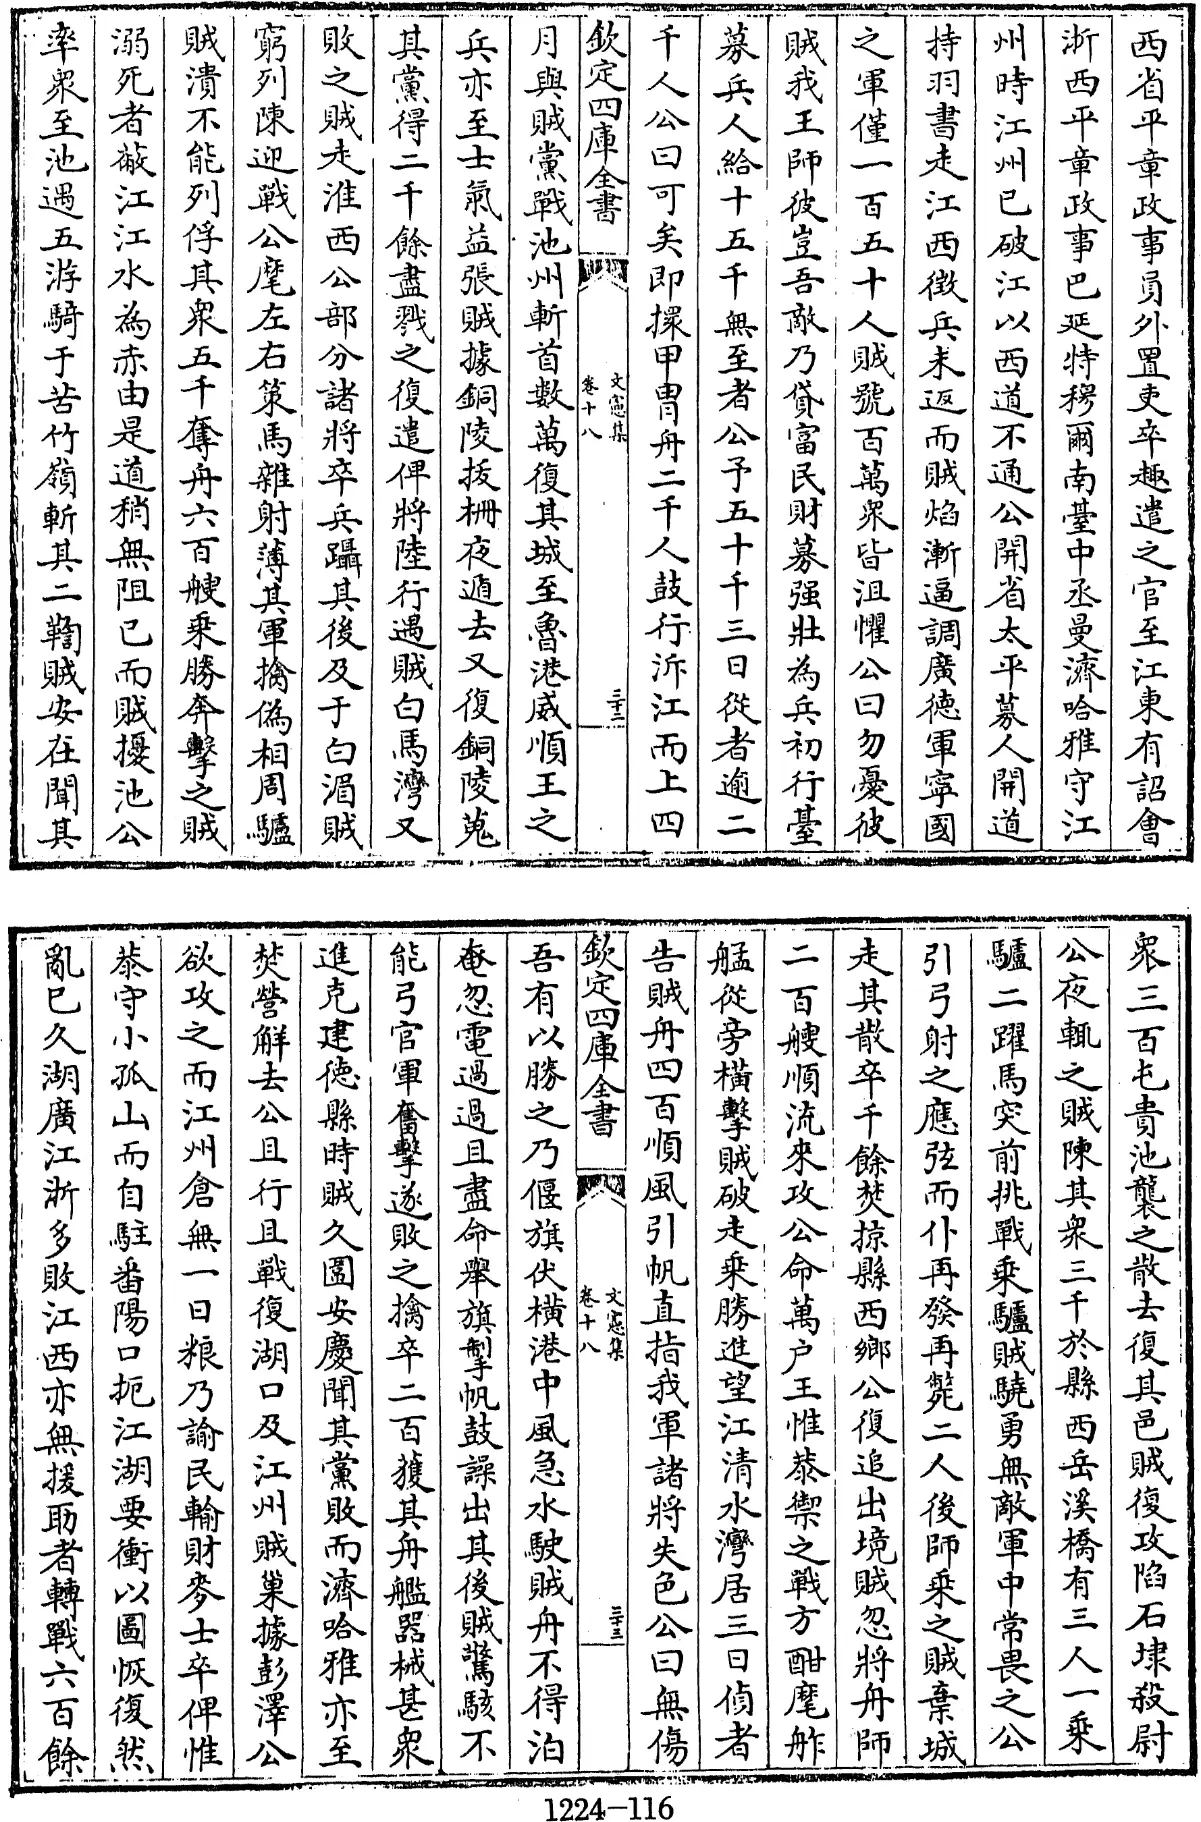 西省平章政事員外置吏卒趣遣之官至江東有詔會
浙西平章政事巴延特穆爾南臺中丞曼濟哈雅守江
州時江州已破江以西道不通公開省太平募人開道
持羽書走江西徵兵未返而賊焰漸逼調廣德軍寧國
之軍僅一百五十人賊號百萬衆皆沮懼公曰勿憂彼
賊我王師彼豈吾敵乃貸富民財募强壯為兵初行臺
募兵人給十五千無至者公予五十千三日從者逾二
千人公曰可矣即擐甲胄舟二千人鼓行泝江而上四
欽定四庫全書
文憲集
卷十八
三十二
月與賊黨戰池州斬首數萬復其城至魯港威順王之
兵亦至士氣益張賊據銅陵拔柵夜遁去又復銅陵蒐
其黨得二千餘盡戮之復遣俾將陸行遇賊白馬灣又
敗之賊走淮西公部分諸將卒兵躡其後及于白湄賊
窮列陳迎戰公麾左右策馬雜射薄其軍擒偽相周驢
賊潰不能列俘其衆五千奪舟六百艘乗勝奔擊之賊
溺死者蔽江江水為赤由是道稍無阻已而賊擾池公
率衆至池遇五游騎于苦竹嶺斬其二鞫賊安在聞其
衆三百屯貴池襲之散去復其邑賊復攻陷石埭殺尉
公夜輒之賊陳其衆三千於縣西岳溪橋有三人一乗
驢二躍馬突前挑戰乗驢賊驍勇無敵軍中常畏之公
引弓射之應弦而仆再發再斃二人後師乗之賊棄城
走其散卒千餘焚掠縣西鄉公復追出境賊忽將舟師
二百艘順流來攻公命萬户王惟恭禦之戰方酣麾舴
艋從旁横擊賊破走乗勝進望江清水灣居三日偵者
告賊舟四百順風引帆直指我軍諸將失色公曰無傷
欽定四庫全書
文憲集
卷十八
三十三
吾有以勝之乃偃旗伏横港中風急水駛賊舟不得泊
奄忽電過過且盡命舉旗掣帆鼓譟出其後賊驚駭不
能弓官軍奮擊遂敗之擒卒二百獲其舟艦器械甚衆
進克建德縣時賊久圍安慶聞其黨敗而濟哈雅亦至
焚營解去公且行且戰復湖口及江州賊巢據彭澤公
欲攻之而江州倉無一日粮乃諭民輸財麥士卒俾惟
恭守小孤山而自駐番陽口扼江湖要衝以圖恢復然
亂已久湖廣江浙多敗江西亦無援助者轉戰六百餘
1224-116